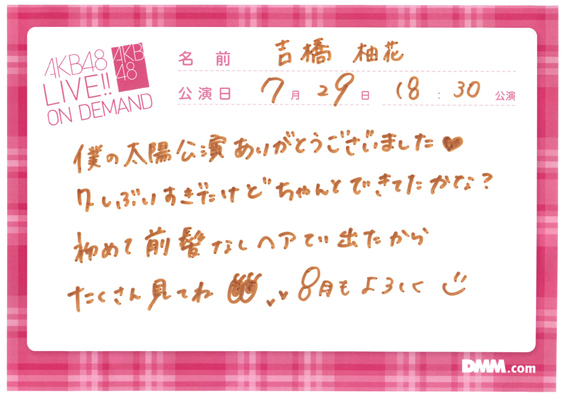 AKB48
LIVE!!
ON DEMAND
AKB
48
名前 吉橋 柚花
公演日 7月29日 18:30公演
僕の太陽公演ありがとうございました♥
久しぶりすぎだけどちゃんとできてたかな?
初めて前髪なしヘアで出たから
たくさん見てね 8月もよろしく
DMM.com